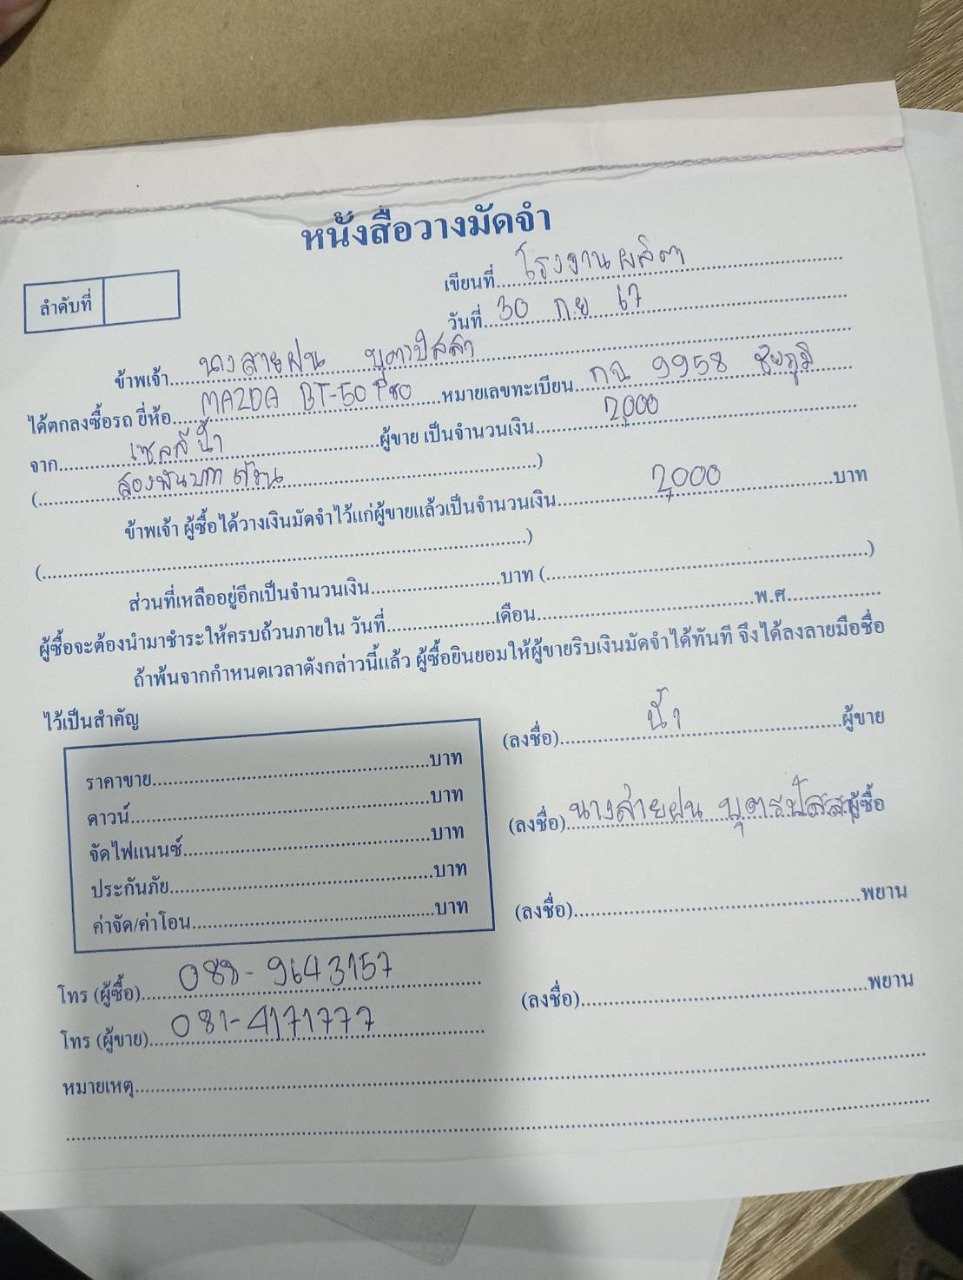 หนังสือวางมัดจำ
ลำดับที่
เขียนที่ โรงงานผลิตา
วันที่ 30 ก.ย 67
ข้าพเจ้า นางสายฝน บุตรปัสสา
ได้ตกลงซื้อรถ ยี่ห้อ MAZDA BT-50 หมายเลขทะเบียน กฉ 9958 ชัยภูมิ
จาก เซลล์น้ำ ผู้ขาย เป็นจำนวนเงิน 2,000
( สองพันบาทถ้วน )
ข้าพเจ้า ผู้ซื้อได้วางเงินมัดจำไว้แก่ผู้ขายแล้วเป็นจำนวนเงิน 2,000 บาท
( )
ส่วนที่เหลืออยู่อีกเป็นจำนวนเงิน บาท ( )
ผู้ซื้อจะต้องนำมาชำระให้ครบถ้วนภายใน วันที่ เดือน พ.ศ.
ถ้าพ้นจากกำหนดเวลาดังกล่าวนี้แล้ว ผู้ซื้อยินยอมให้ผู้ขายริบเงินมัดจำได้ทันที จึงได้ลงลายมือชื่อ
ไว้เป็นสำคัญ
(ลงชื่อ) น้ำ ผู้ขาย
ราคาขาย บาท
ดาวน์ บาท
(ลงชื่อ) นางสายฝน บุตรปัสสา ผู้ซื้อ
จัดไฟแนนซ์ บาท
ประกันภัย บาท
(ลงชื่อ) พยาน
ค่าจัด/ค่าโอน บาท
โทร (ผู้ซื้อ) 088-9643157
(ลงชื่อ) พยาน
โทร (ผู้ขาย) 081-4171777
หมายเหตุ